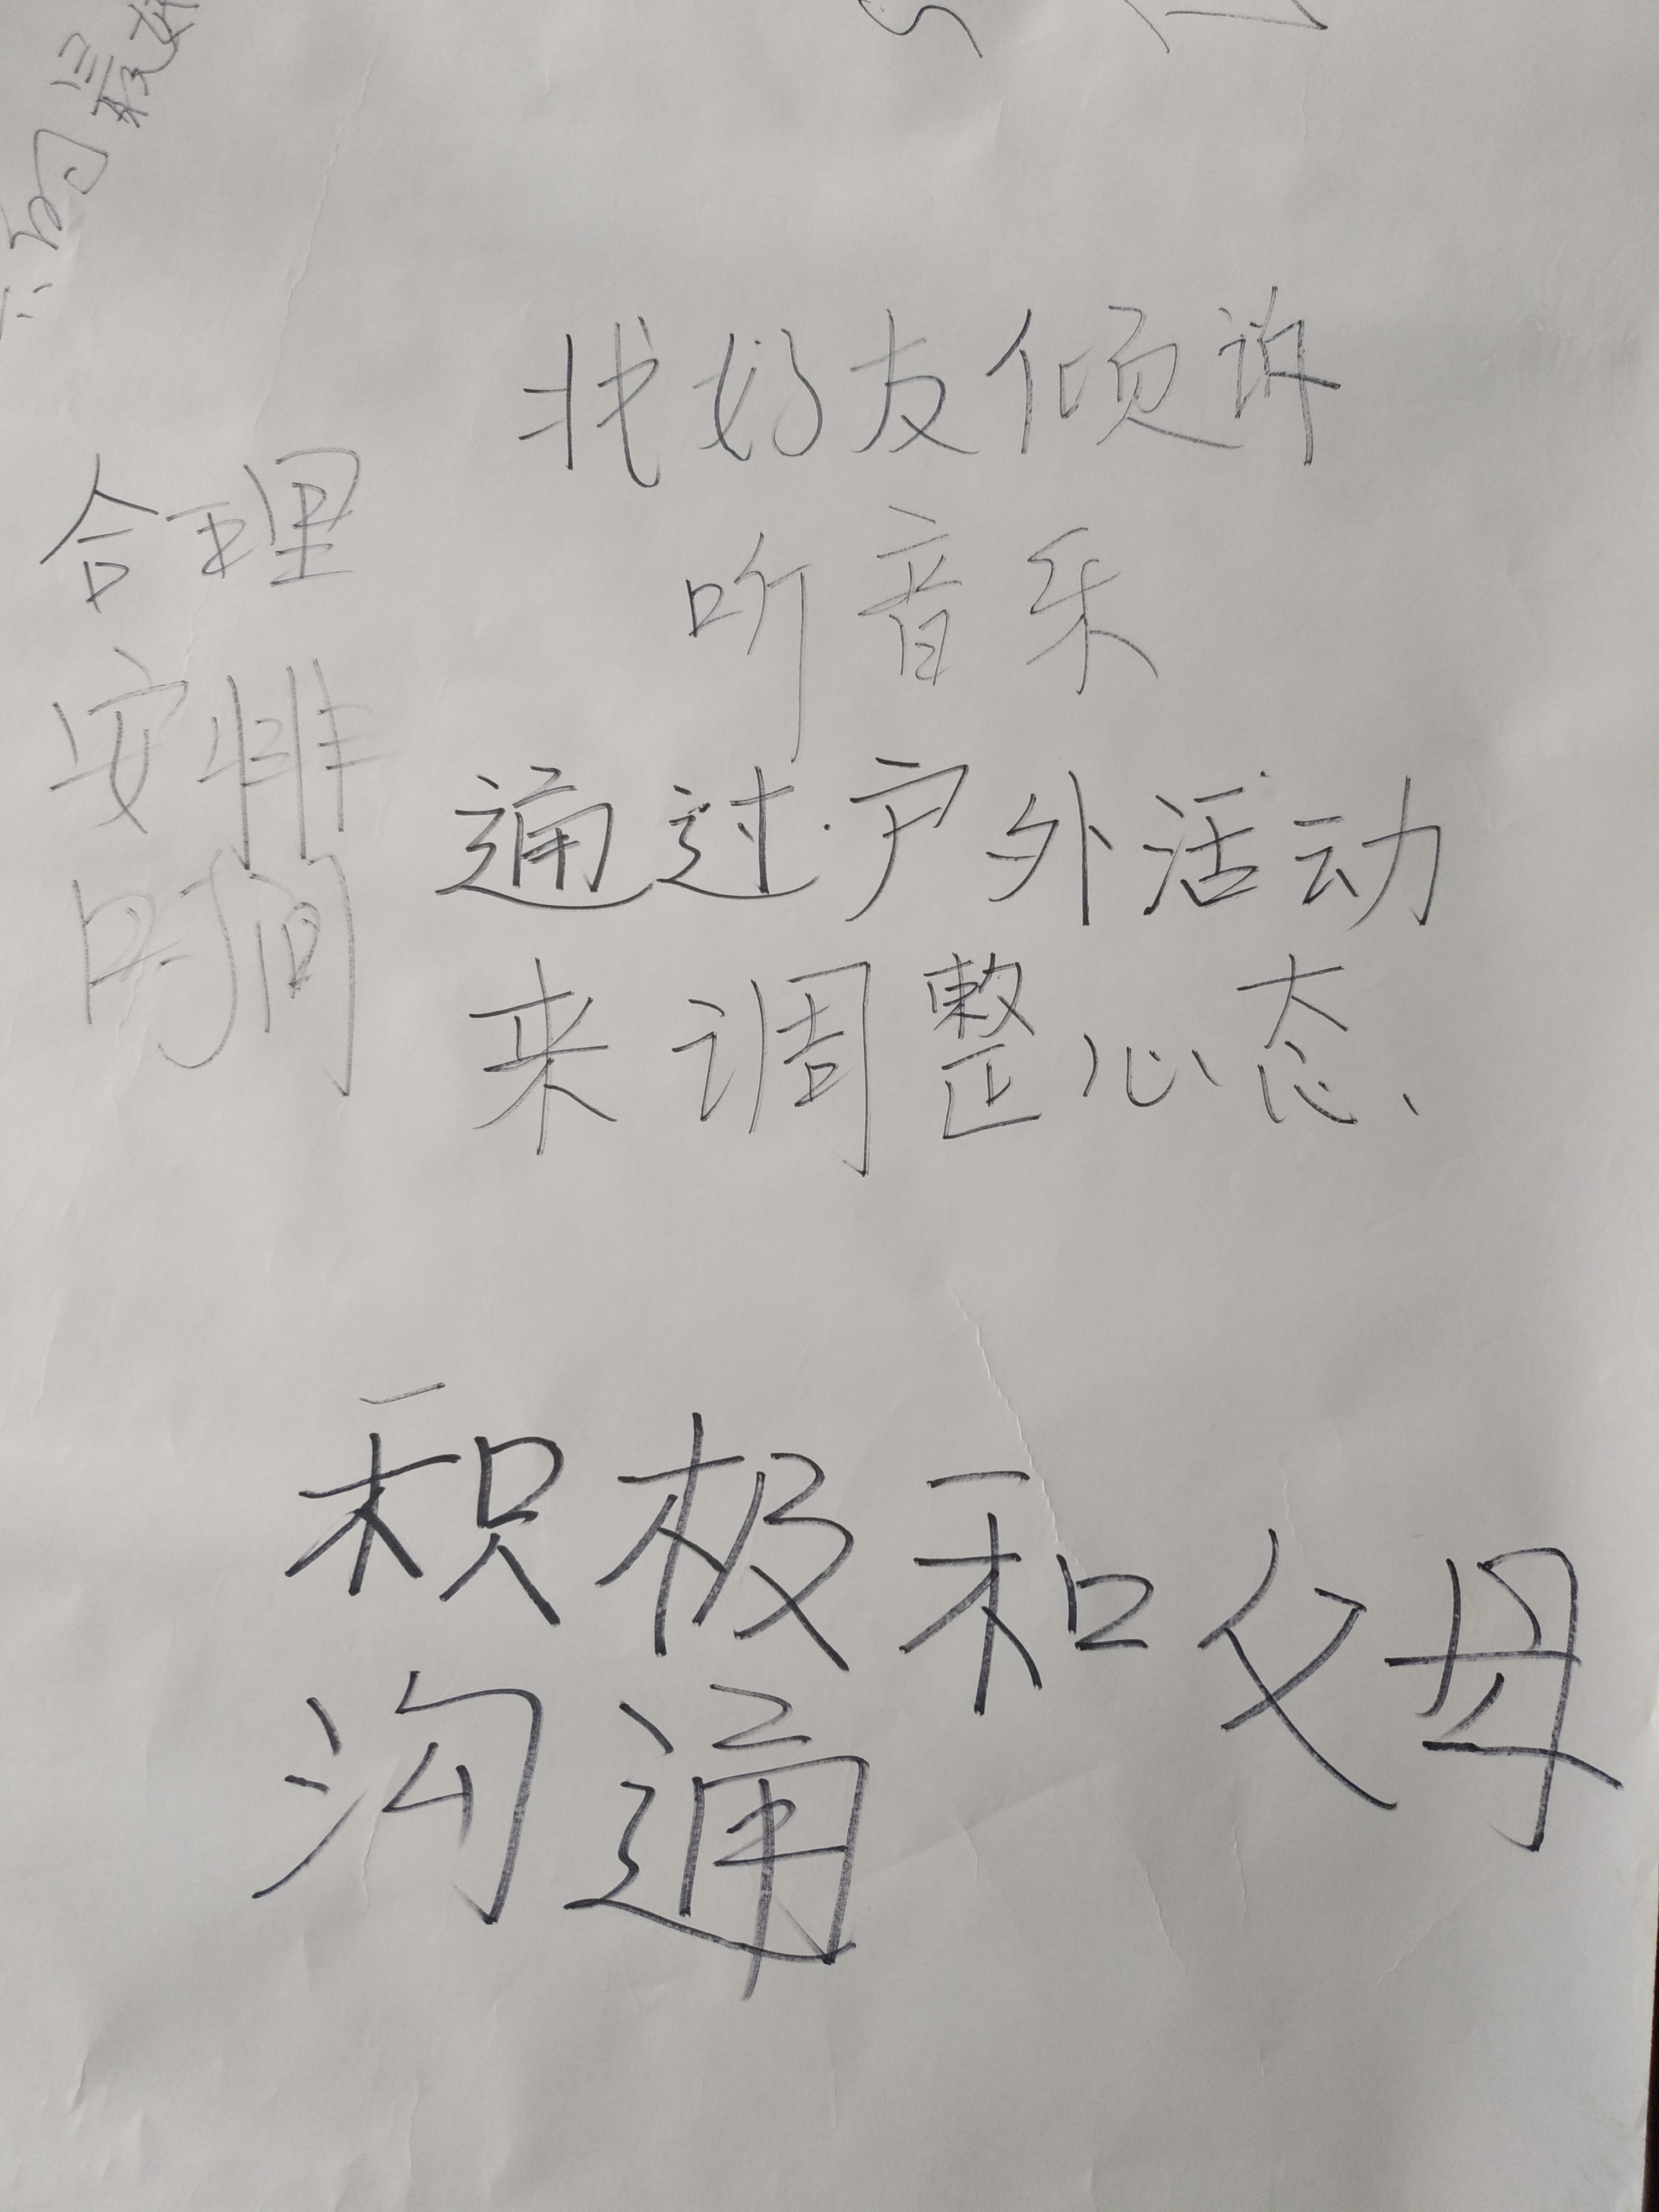 的最好
找好友倾诉
听音乐
通过户外活动
来调整心态、
合理
安排
时间
积极和父母
沟通